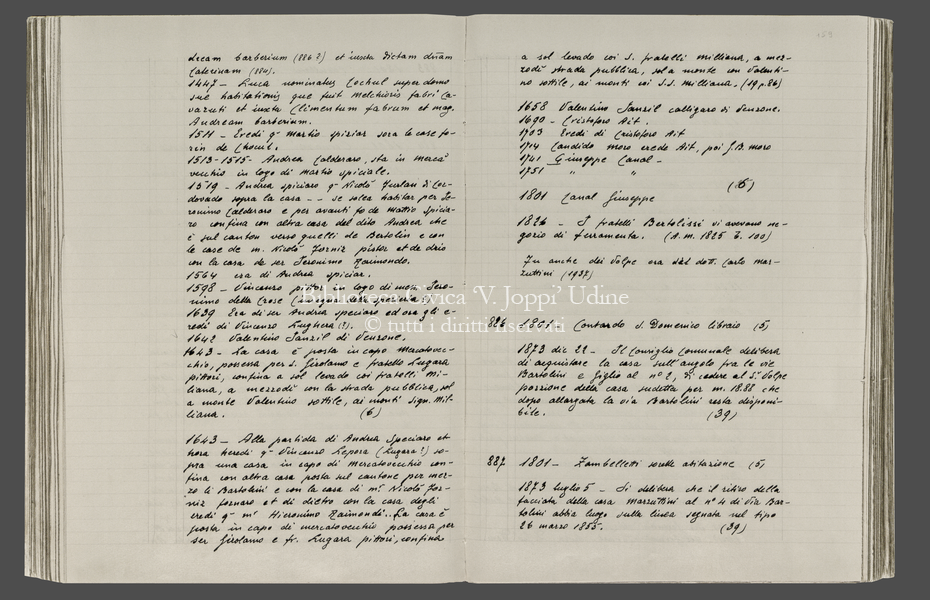 dream barberium (886?) et iuxta dictam dnam
Caterinam (884).
1447- Luca nominatus Cochul super domo
sue habitationis que fuit Melchioris fabri Ca-
vazuti et iuxta Climentum fabrum et mag.
Andream barberium.
1511 - Eredi q. Martio spiziar sora le case fo-
rin de Chocul.
1513-1515- Andrea Calderaro, sta in mercà
vecchio in logo di Martio spiciale.
1519 - Andrea spiciaro q. Nicolò Furlan di Cor-
dovado sopra la casa -- se solea habitar per Je-
ronimo Calderaro e per avanti fo de Mattio spicia-
ro confina con altra casa del dito Andrea che
è sul canton verso quelli de Bertolin e con
le case de m. Nicolò Forniz pistor et de drio
con la casa de ser Jeronimo Raimondo.
1564 era di Andrea spiciar.
1598 - Vincenzo pittor in logo di mess. Jero-
nimo della Crose
1639 Era di ser Andrea speciaro ed ora gli e-
redi di Vincenzo Lughera (?).
1642 Valentino Janzil di Venzone.
1643 - La casa è posta in capo mercatovec-
chio, possessa per s. Girolamo e fratello Lugara
pittori, confina a sol levado coi fratelli Mi-
liana, a mezzodì con la strada pubblica, sol
a monte Valentino sottile, ai monti sign. Mil-
liana. (6)
1643 - Alla partida di Andrea speciaro et
hora heredi q. Vincenzo Lepora (Lugara?) so-
pra una casa in capo di mercatovecchio con-
fina con altra casa posta sul cantone per mez-
zo li Bartolini e con la casa di mr Nicolò For-
niz fornaro et di dietro con la casa degli
eredi q. mr Hieronimo Raimondi.. La casa è
posta in capo di mercatovecchio possessa per
ser Girolamo e fr. Lugara pittori, confina
159
a sol levado coi s. fratelli Milliana, a mez-
zodì strada pubblica, sol a monte con Valenti-
no sottile, ai monti coi S.S. Milliana. (19 p.86)
1658 Valentino Janzil calligaro di Venzone.
1690 - Cristoforo Ait.
1703 Eredi di Cristoforo Ait
1714 Candido Moro erede Ait, poi G.B. Moro
1741 Giuseppe Canal -
1751 " "
(6)
1801 Canal Giuseppe
1826 - I fratelli Bertolissi vi avevano ne-
gozio di ferramenta. (A.m. 1825 E. 100)
Fu anche dei Volpe ora del dott. Carlo Mar-
zuttini (1937)
Biblioteca Civica 'V. Joppi' Udine
© tutti i diritti riservati
886 1801 - Contardo s. Domenico libraio (5)
1873 dic 22 - Il Consiglio Comunale delibera
di acquistare la casa sull'angolo fra le vie
Bartolini e Giglio al n° 2, di cedere al S. Volpe
porzione della casa sudetta per m. 18.88 che
dopo allargata la via Bartolini resta disponi-
bile. (39)
887 1801 - Zambelletti sorelle abitazione (5)
1873 luglio 5 - Si delibera che il ritiro della
facciata della casa Marzuttini al n° 4 di via Bar-
tolini abbia luogo sulla linea segnata nel tipo
26 marzo 1855. (39)